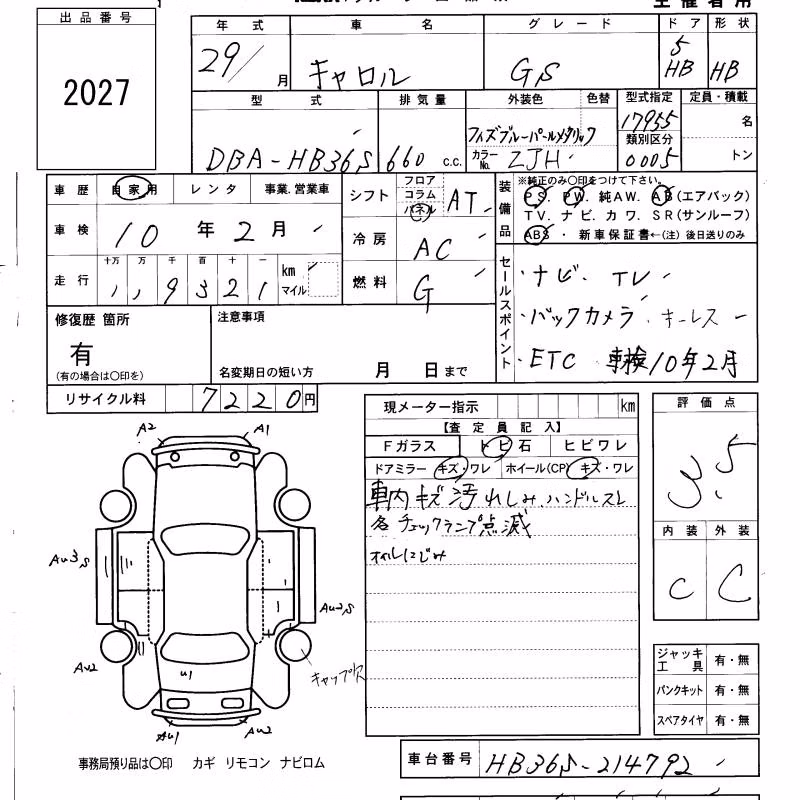 出品番号
2027
年式 車名 グレード ドア 形状
29/ 月 キャロル GS 5 HB HB
型式 排気量 外装色 色替 型式指定 定員・積載
DBA-HB36S 660 c.c. フィズブルーパールメタリック 17955 名
カラーNo. ZJH 類別区分 0005 トン
車歴 自家用 レンタ 事業.営業車
シフト フロア コラム パネル AT
装備品 ※純正のみ○印をつけて下さい。
PS. PW. 純AW. AB(エアバック)
TV. ナビ. カワ. SR(サンルーフ)
ABS ・ 新車保証書←(注) 後日送りのみ
車検 10年2月
冷房 AC
走行 十万 万 千 百 十 一 km マイル
9321
燃料 G
セールスポイント
・ナビ. TV
・バックカメラ. キーレス
・ETC 車検10年2月
修復歴 箇所
有
(有の場合は○印を)
注意事項
名変期日の短い方 月 日まで
リサイクル料 7220円
現メーター指示 km
【査定員記入】
Fガラス トビ石 ヒビワレ
ドアミラー キズ・ワレ ホイール(CP) キズ・ワレ
車内キズ汚れしみ.ハンドルスレ
各チェックランプ点滅
オイルにじみ
評価点
3.5
内装 外装
C C
A2 A1
Au3s
Au2s
Au2
u1
キャップ欠
Au1 Au2
ジャッキ 工具 有・無
パンクキット 有・無
スペアタイヤ 有・無
事務局預り品は○印 カギ リモコン ナビロム
車台番号 HB36S-214792